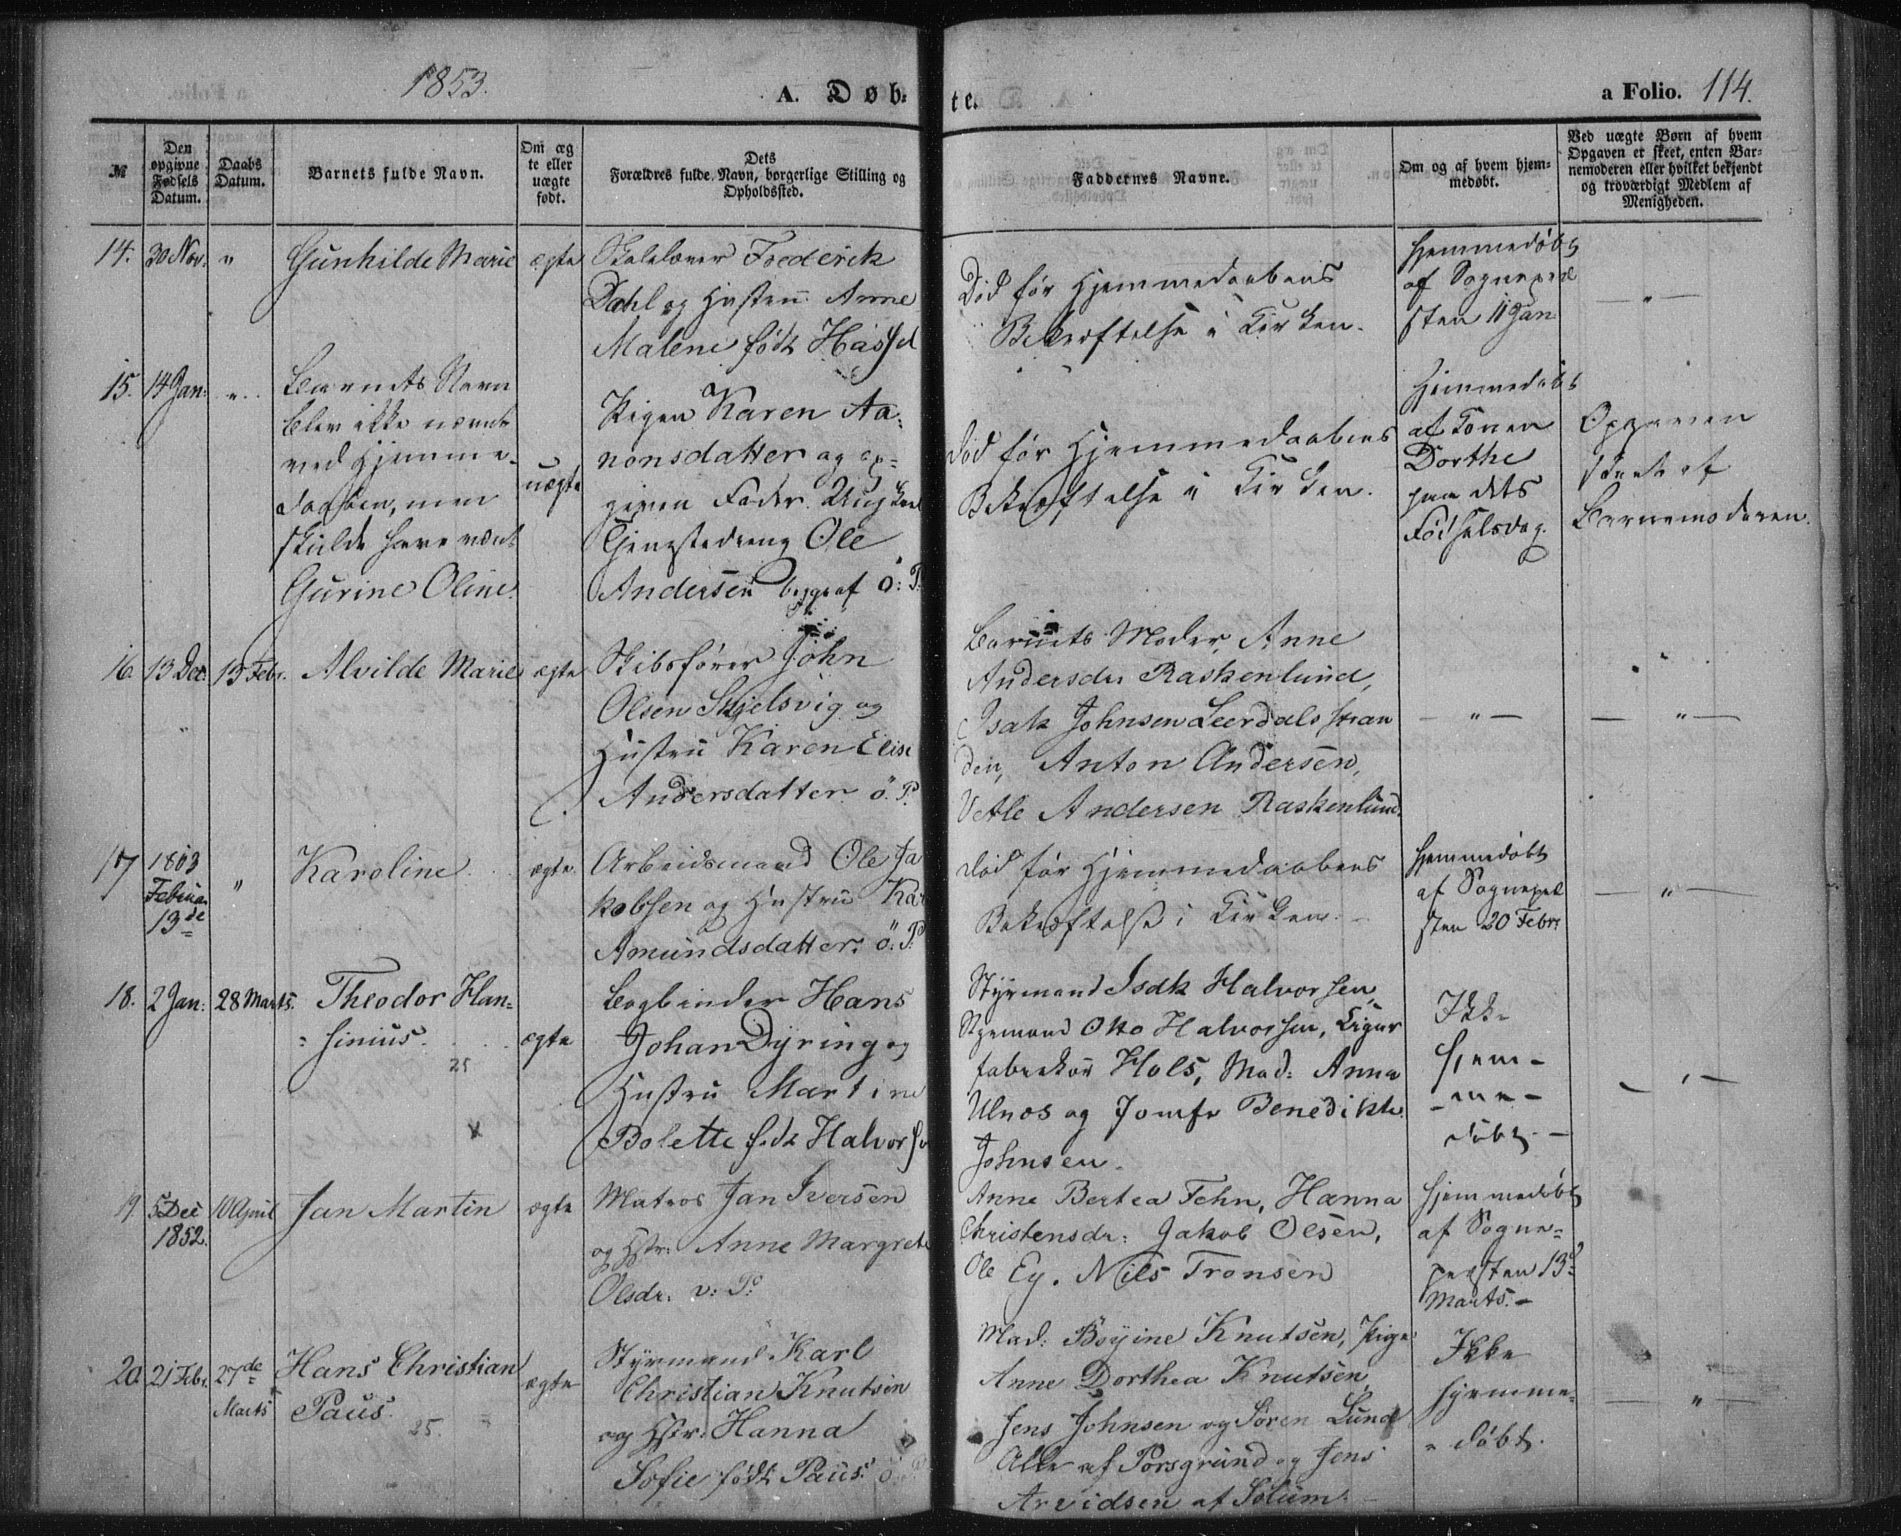 1853.
A. Døb-
te.
a Folio. 114.
№
Den opgivne Fødsels Datum.
Daabs Datum.
Barnets fulde Navn.
Om æg te eller uægte født.
Dets Forældres fulde Navn, borgerlige Stilling og Opholdssted.
Faddernes Navne.
Om og af hvem hjemmedøbt.
Ved uægte Børn af hvem Opgaven er skeet, enten Barnemoderen eller hvilket bekjendt og troværdigt Medlem af Menigheden.
14. 30 Nov. "
Gunhilde Marie
ægte
Skolelærer Frederik
Dahl og Hustru Anne
Malene født Hassel
Død før Hjemmedaabens
Bekræftelse i Kirken.
Hjemmedøbt
af Sognepræ
sten 11 Jan
— " —
15. 14 Jan: "
Barnets Navn
blev ikke nævnt
ved Hjemme-
daaben, men
skulde have været
Gurine Oline.
uægte
Pigen Karen Aa-
nonsdatter og op-
given Fader Ungkarl
Ole
Andersen ö: P.
Død før Hjemmedaabens
Bekræftelse i Kirken.
Hjemmedøbt
af Konen
Dorthe
paa dets
Fødselsdag.
Opgaven
skeet af
Barnemoderen.
16. 13 Dec. 13 Febr.
Alvilde Marie
ægte
Skibsfører John
Olsen Skjelsvig og
Hustru Karen Elise
Andersdatter ö. P.
Barnets Moder, Anne
Andersdr Raskenlund,
Isak Johnsen Leerdalsstran
den, Anton Andersen,
Vetle Andersen Raskenlund.
— " —
— " —
17 1853
Februar
13de
"
Karoline
ægte
Arbeidsmand Ole Ja
kobsen og Hustru Kar
Amundsdatter. ö: P.
Død før Hjemmedaabens
Bekræftelse i Kirken.
Hjemmedøbt
af Sognepræ
sten 20 Febr.
— " —
18. 2 Jan: 28 Marts.
Theodor Han-
sinius.
25
x
ægte
Bogbinder Hans
Johan Dyring og
Hustru Martine
Bolette født Halvorse
Styrmand Isak Halvorsen,
Styrmand Otto Halvorsen, Cigar
fabrikør Hals, Mad: Anna
Ulnæs og Jomfr Benedikte
Johnsen.
Ikke
hjem-
- me -
døbt. —
19. 5 Dec
1852.
10 April
Jan Martin
ægte
Matros Jan Iversen
og Hstr: Anne Margrete
Olsdr. v: P:
Anne Bertea Fehn, Hanna
Christensdr: Jakob Olsen,
Ole Ey. Nils Tronsen
Hjemmedøbt
af Sogne-
præsten 13d
Marts. —
20. 21 Febr. 27de
Marts
Hans Christian
Paus.
25.
ægte
Styrmand Karl
Christian Knutsen
og Hstr: Hanna
Sofie født Paus. ö. P.
Mad: Boyine Knutsen, Pige
Anne Dorthea Knutsen
Jens Johnsen og Søren Lund
Alle af Porsgrund og Jens
Arvidsen af Solum.
Ikke
hjemme-
døbt.
— " —